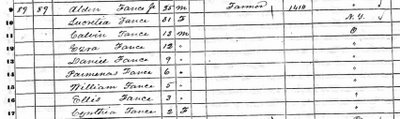 9 89 89 Alden Fance Jr 35 m Farmer 1410 "
10 Lucretia Fance 31 F N.Y.
11 Calvin Fance 13 m O
12 Ezra Fance 12 " "
13 Daniel Fance 9 " "
14 Parmenas Fance 6 " "
15 William Fance 5 " "
16 Ellis Fance 3 " "
17 Cynthia Fance 2 F "